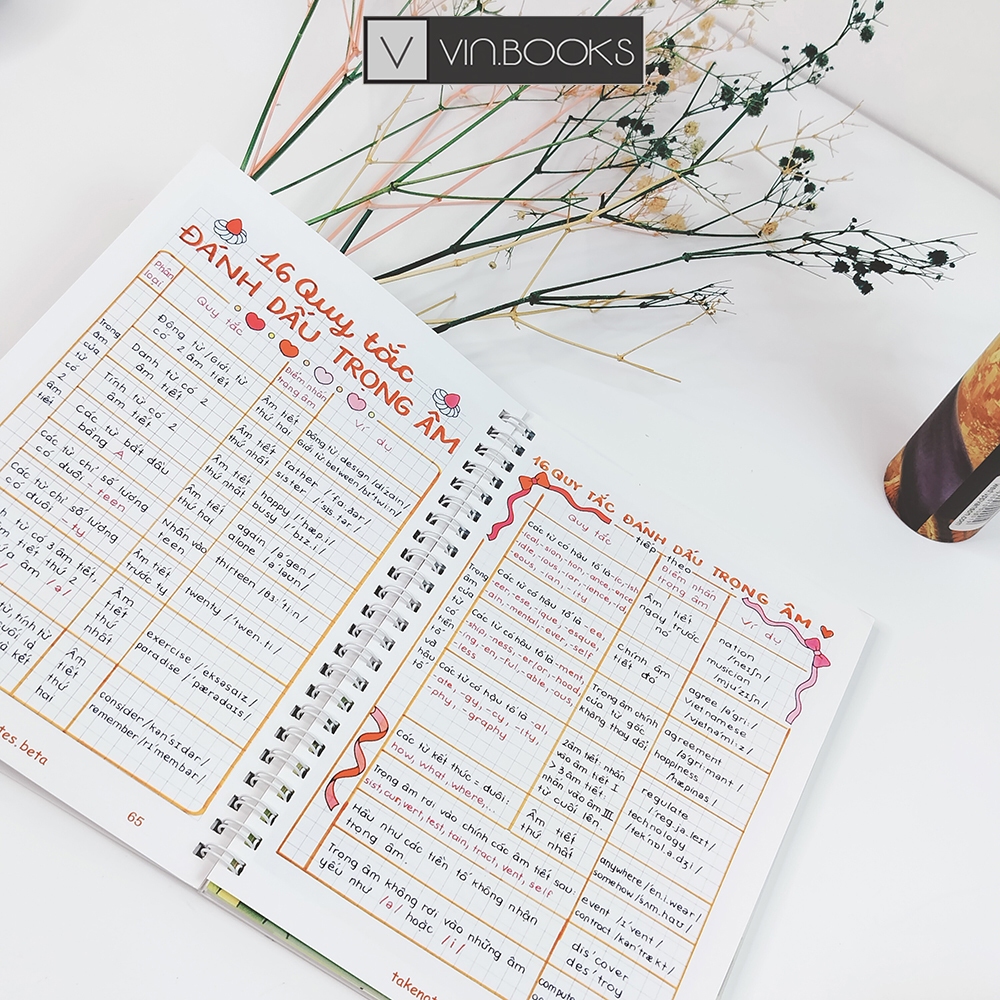 V VIN.BOOKS
16 Quy tắc
ĐÁNH DẤU TRỌNG ÂM
Phân loại
Quy tắc
Điểm nhấn trọng âm
Ví dụ
Trọng âm của từ có 2 âm tiết
Động từ/Giới từ có 2 âm tiết
Âm tiết thứ hai
Động từ: design /dizain/
Giới từ: between /bɪ'twi:n/
Danh từ có 2 âm tiết
Âm tiết thứ nhất
father /'fa:ðər/
sister /'sɪs.tər/
Tính từ có 2 âm tiết
Âm tiết thứ nhất
happy /'hæp.i/
busy /'bɪz.i/
Các từ bắt đầu bằng A
Âm tiết thứ hai
again /ə'gen/
alone /ə'ləʊn/
Các từ chỉ số lượng có đuôi -teen
Nhấn vào teen
thirteen /θɜ:'ti:n/
Các từ chỉ số lượng có đuôi -ty
Âm tiết trước ty
twenty /'twen.ti/
từ có 3 âm tiết,
âm tiết thứ 2
âm /ə/
Âm tiết thứ nhất
exercise /'eksəsaiz/
paradise /'pærədais/
tính từ
cuối là
kết
Âm tiết thứ hai
consider /kən'sɪdər/
remember /rɪ'membər/
tes.beta
65
16 QUY TẮC ĐÁNH DẤU TRỌNG ÂM
tiếp theo
Quy tắc
Điểm nhấn trọng âm
Ví dụ
Trọng âm của từ có tiền tố và hậu tố
Các từ có hậu tố là -ic, -ish
-ical, -sion, -tion, -ance, -ence
-idle, -ious, -iar, -ience, -id,
-eous, -ian, -ity
Âm tiết ngay trước nó
nation /'neɪʃn/
musician /mju'zɪʃn/
Các từ có hậu tố là -ee,
-eer, -ese, -ique, -esque,
-ain, -mental, -ever, -self
Chính âm tiết đó
agree /ə'gri:/
Vietnamese /vjetnə'mi:z/
Các từ có hậu tố là -ment,
-ship, -ness, -er/or, -hood,
-ing, -en, -ful, -able, -ous,
-less
Trọng âm chính của từ gốc không thay đổi
agreement /ə'gri:mənt/
happiness /'hæpinəs/
Các từ có hậu tố là -al,
-ate, -gy, -cy, -ity,
-phy, -graphy
2 âm tiết: nhấn vào âm tiết I
> 3 âm tiết: nhấn vào âm III từ cuối lên.
regulate /'reg.jə.leɪt/
technology /tek'nɒl.ə.dʒi/
Các từ kết thúc = đuôi:
how, what, where,...
Âm tiết thứ nhất
anywhere /'en.i.wear/
somehow /'sʌm.haʊ/
Trọng âm rơi vào chính các âm tiết sau:
sist, cur, vert, test, tain, tract, vent, self
event /ɪ'vent/
contract /kən'trækt/
Hầu như các tiền tố không nhận
trọng âm.
dis'cover
des'troy
Trọng âm không rơi vào những âm
yếu như /ə/ hoặc /i/
takenot